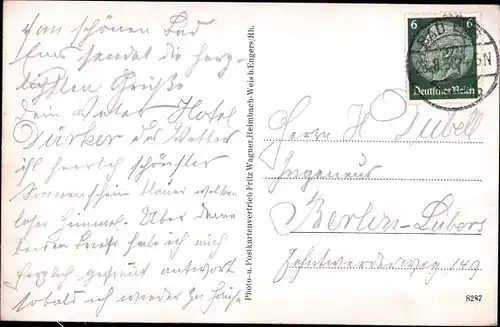 Vom schönen Bad
Ems sendet die herz-
lichsten Grüße
Dein Vater Hotel
Dürker das Wetter
ist herrlich schönster
Sonnenschein blauer wolken
loser Himmel. Über deine
beiden Briefe habe ich mich
herzlich gefreut antwort
sobald ich wieder zu Hause
Photo-u. Postkartenvertrieb Fritz Wagner, Heimbach-Weis b. Engers/Rh.
6 6
Deutsches Reich
Herrn H Dubell
Ingeneur
Berlin-Lübars
Zehntwerderweg 149
8287